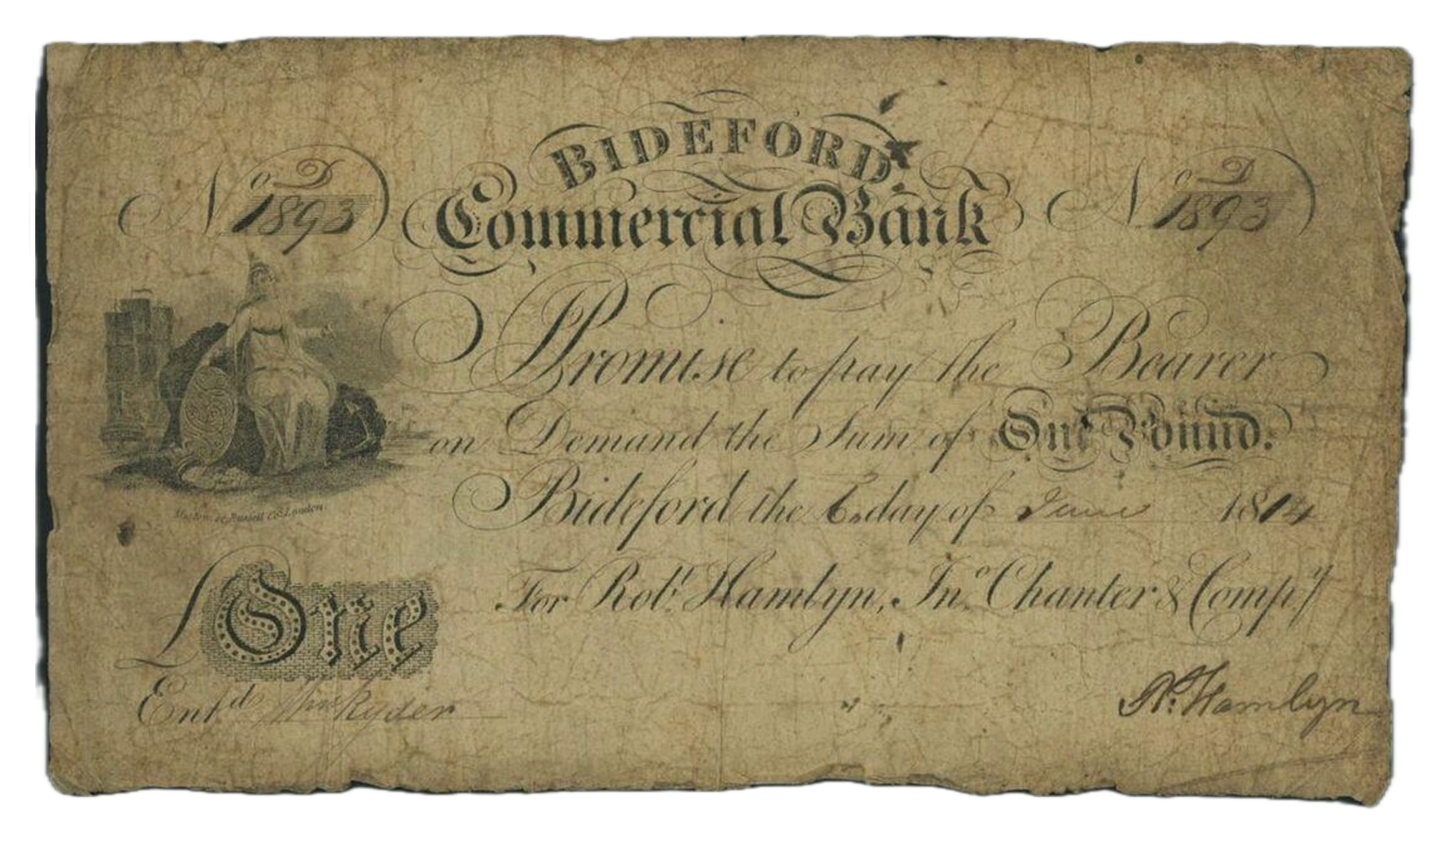 BIDEFORD
Commercial Bank
No D 1893
No D 1893
I Promise to pay the Bearer
on Demand the Sum of One Pound.
Bideford the 6 day of June 1814
For Robt. Hamlyn, Jno. Chanter & Compy
£One
Entd Wm Ryder
Rt. Hamlyn